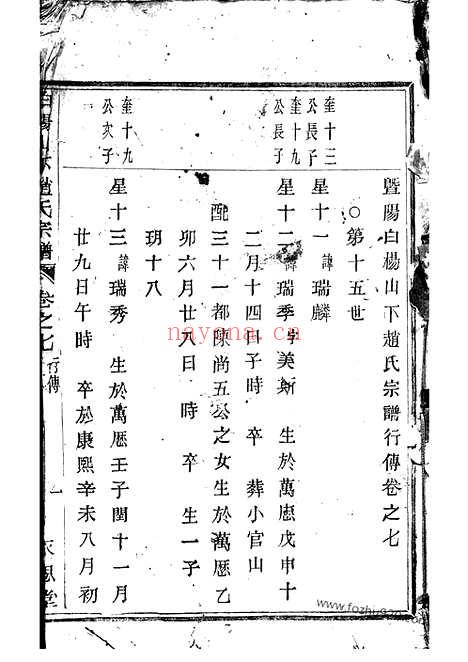 暨陽白楊山下趙氏宗譜行傳卷之七
○第十五世
奎十三公長子
星十一 諱瑞麟
奎十九公長子
星十二 諱瑞季字美斯 生於萬歷戊申十
二月十四日子時 卒 葬小官山
配三十一都陳尚五公之女生於萬歷乙
卯六月廿八日 時 卒 生一子
玥十八
奎十九公次子
星十三 諱瑞秀 生於萬歷壬子閏十一月
廿九日午時 卒於康熙辛未八月初
白楊山下趙氏宗譜 卷之七 行傳 一
nayona.cn
www.fozhu920.com